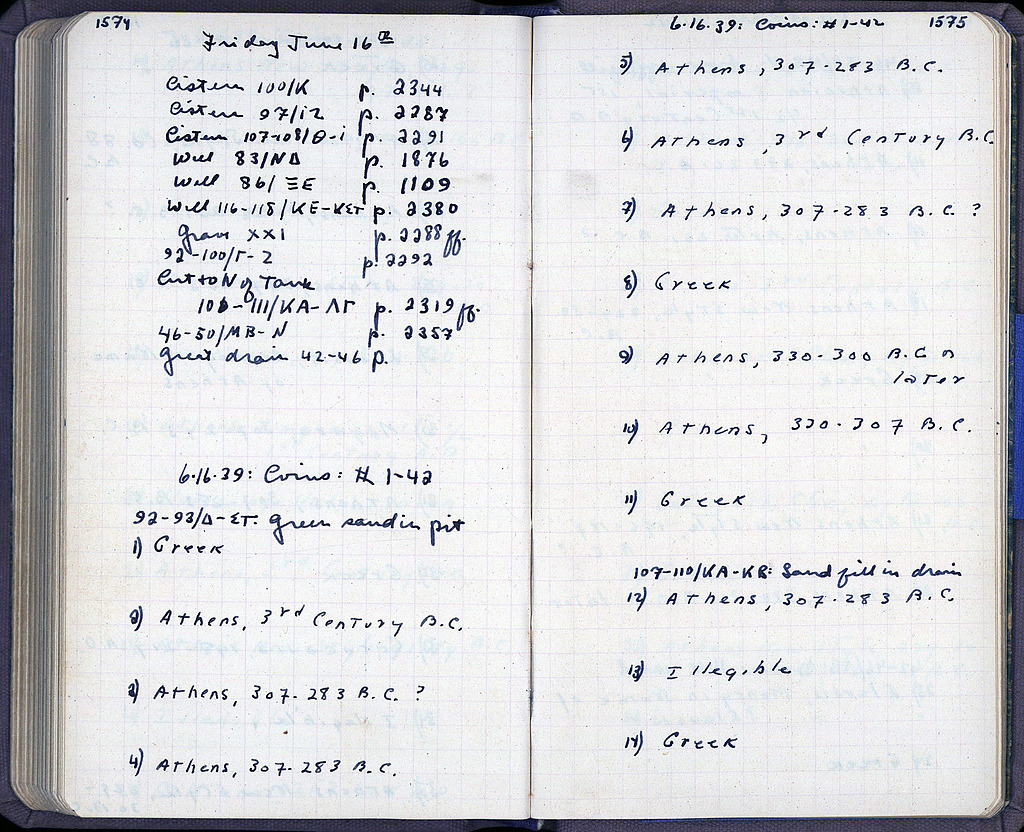 1574
Friday June 16th
Cistern 100/K p. 2344
Cistern 97/ιζ p. 2287
Cistern 107-108/Θ-ι p. 2291
Well 83/ΝΔ p. 1876
Well 86/ΞΕ p. 1109
Well 116-118/ΚΕ-ΚΣΤ p. 2380
Grave XXI p. 2288 ff.
92-100/Γ-Ζ p. 2292
Cut to N of Tank
106-111/ΚΑ-ΛΓ p. 2319 ff.
46-50/ΜΒ-Ν p. 2357
Great drain 42-46 p.
6.16.39: Coins: # 1-42
92-93/Δ-ΣΤ: green sand in pit
1) Greek
2) Athens, 3rd Century B.C.
3) Athens, 307-283 B.C. ?
4) Athens, 307-283 B.C.
6.16.39: Coins: # 1-42 1575
5) Athens, 307-283 B.C.
6) Athens, 3rd Century B.C.
7) Athens, 307-283 B.C. ?
8) Greek
9) Athens, 330-300 B.C. or
later
10) Athens, 330-307 B.C.
11) Greek
107-110/ΚΑ-ΚΒ: Sand fill in drain
12) Athens, 307-283 B.C.
13) Illegible
14) Greek